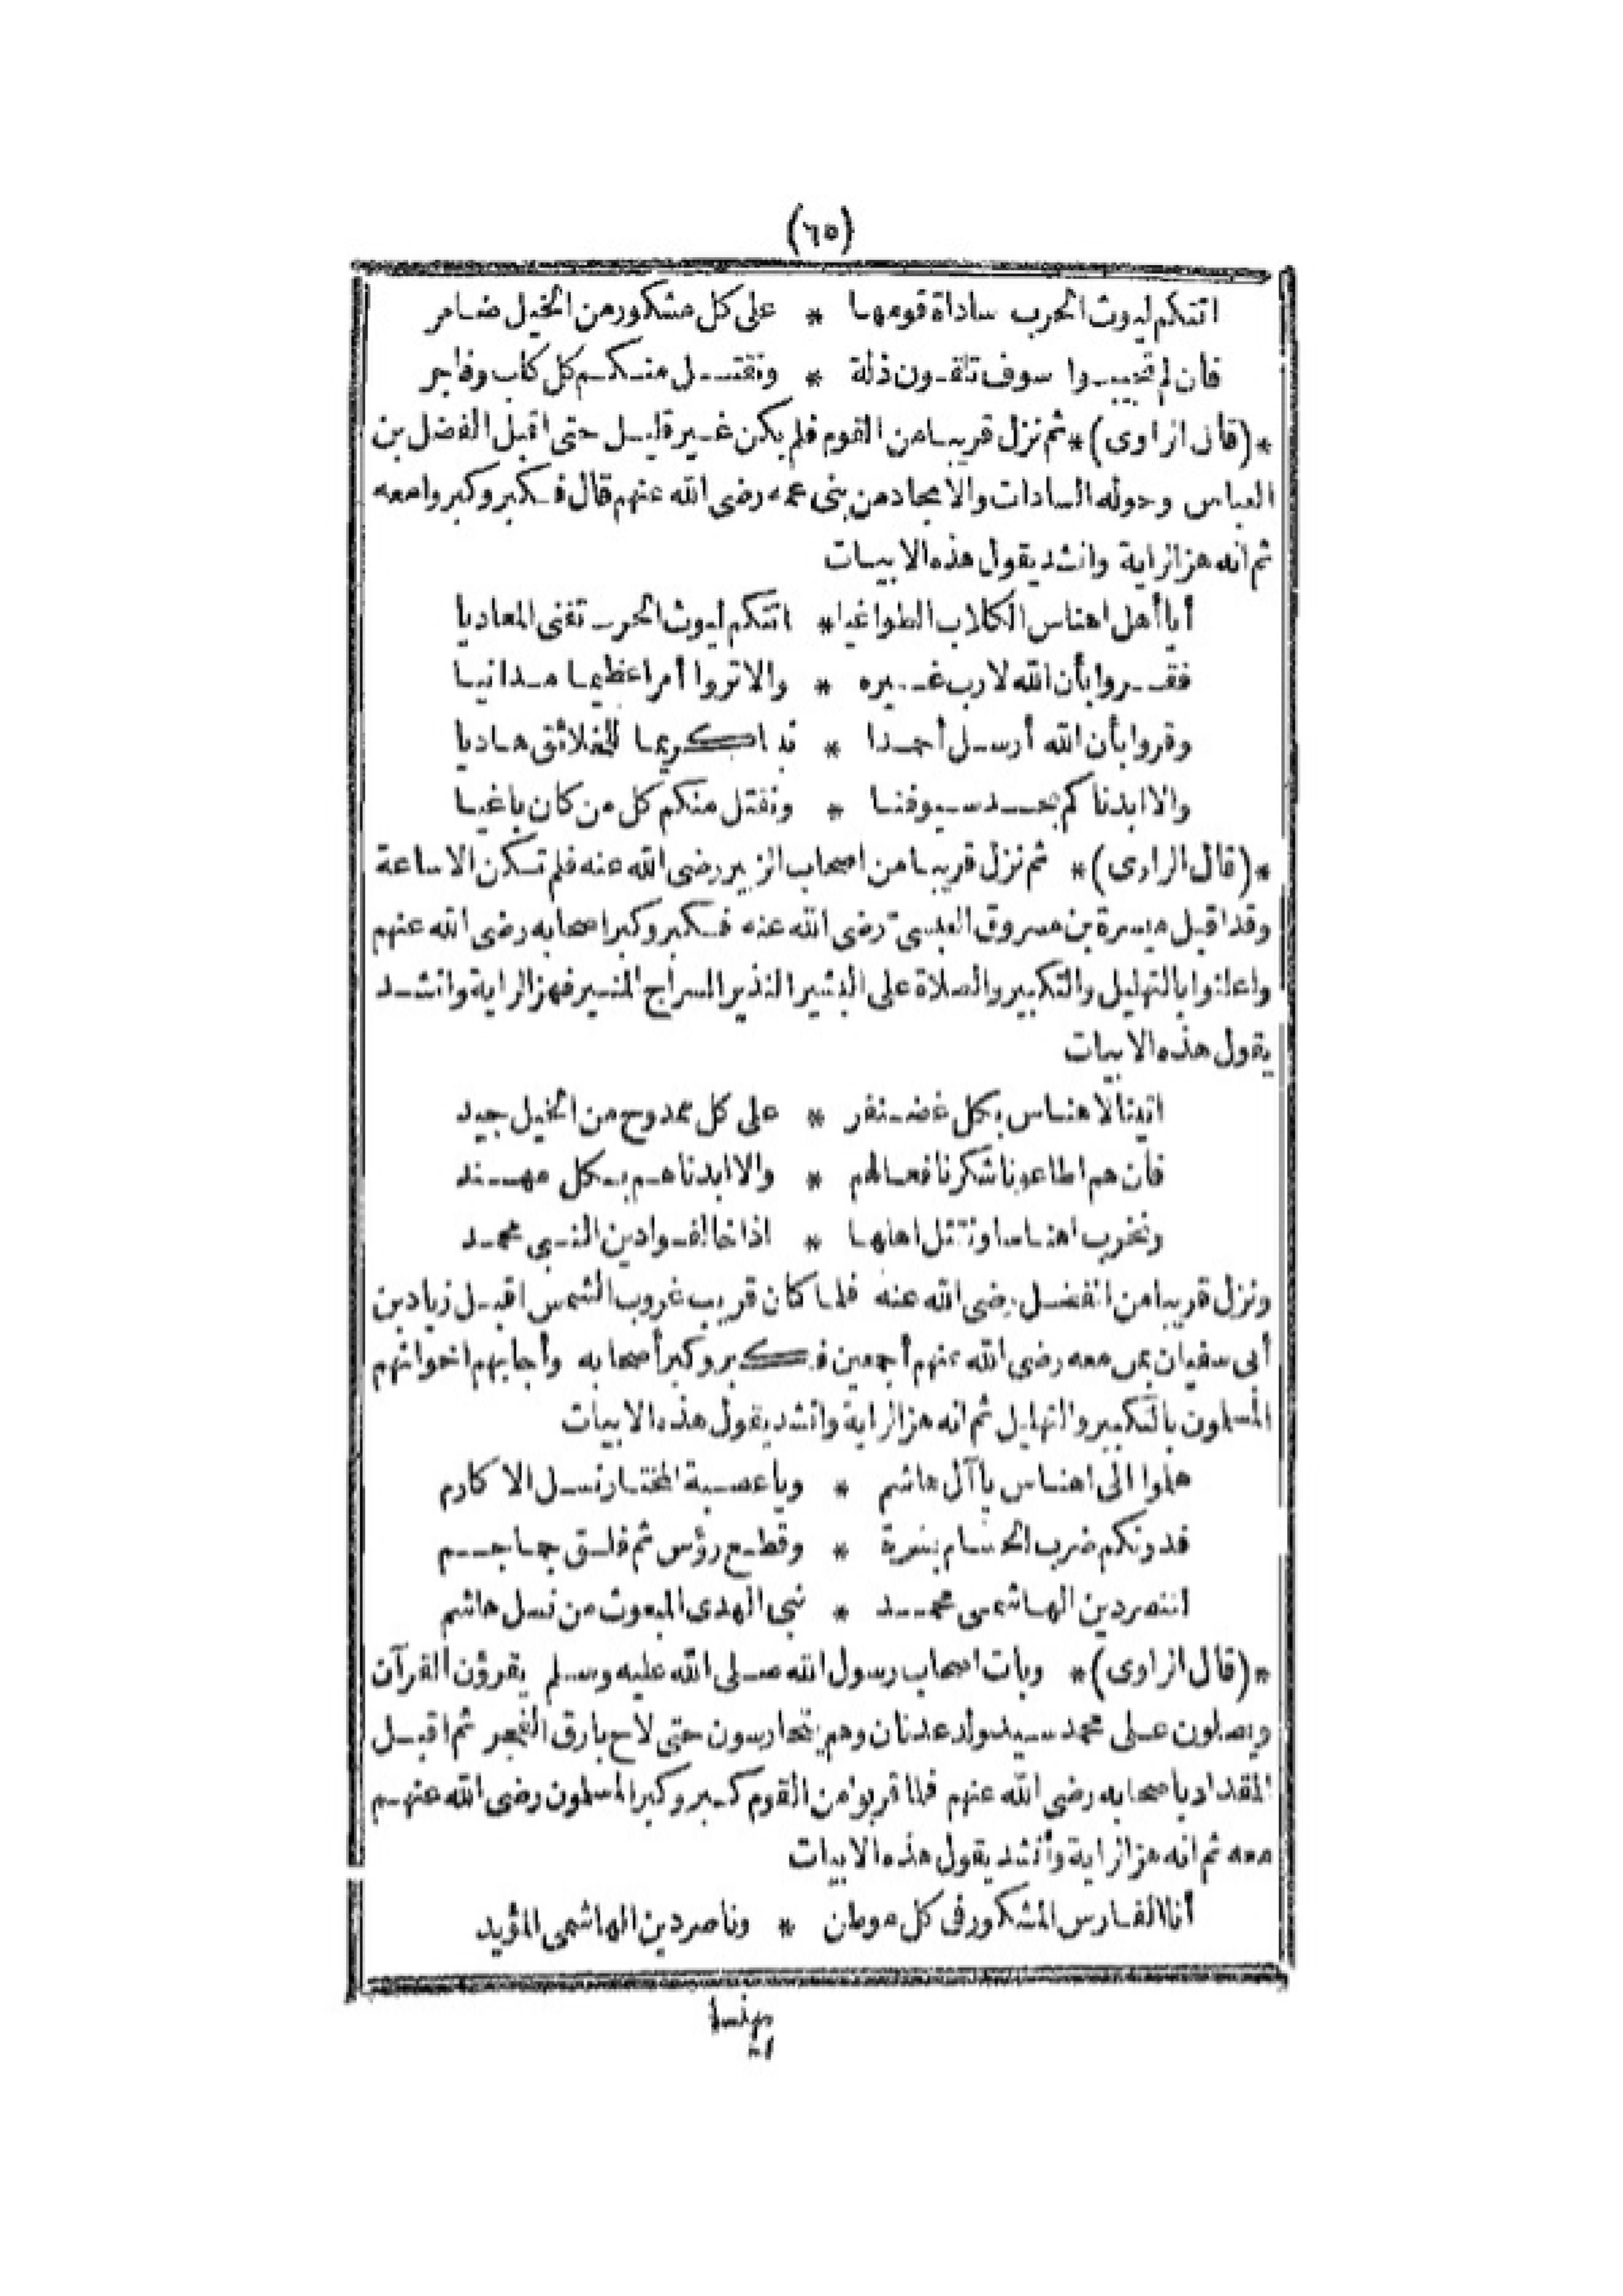 (٦٥)
اتتكم ليوث الحرب ساداة قومها * على كل مشكور من الخيل ضامر
فان لم تجيبوا سوف تلقون ذلة * ونقتل منكم كل كلب وفاجر
*(قال الراوى)* ثم نزل قريبا من القوم فلم يكن غير قليل حتى اقبل الفضل بن
العباس وحوله السادات والامجاد من بنى عمه رضى الله عنهم قال فكبر وكبروا معه
ثم انه هز الراية وانشد يقول هذه الابيات
أيا أهل اهناس الكلاب الطواغيا * اتتكم ليوث الحرب تفنى المعاديا
فقروا بأن الله لا رب غيره * والا تروا أمرا عظيما مدانيا
وقروا بأن الله أرسل أحمدا * نبيا كريما للخلائق هاديا
والا ابدناكم بحد سيوفنا * ونقتل منكم كل من كان باغيا
*(قال الراوى)* ثم نزل قريبا من اصحاب الزبير رضى الله عنه فلم تسكن الاساعة
وقد اقبل ميسرة بن مسروق العبسى رضى الله عنه فكبر وكبر اصحابه رضى الله عنهم
واعلنوا بالتهليل والتكبير والصلاة على البشير النذير السراج المنير فهز الراية وانشد
يقول هذه الابيات
اتينا لاهناس بكل غضنفر * على كل ممدوح من الخيل جيد
فان هم اطاعونا شكرنا فعالهم * والا ابدناهم بكل مهند
ونخرب اهناسا ونقتل اهلها * اذا خالفوا دين النبى محمد
ونزل قريبا من الفضل رضى الله عنه فلما كان قريب غروب الشمس اقبل زياد بن
أبى سفيان بمن معه رضى الله عنهم أجمعين فكبر وكبر أصحابه وأجابهم اخوانهم
المسلمون بالتكبير والتهليل ثم انه هز الراية وانشد يقول هذه الابيات
هلموا الى اهناس يا آل هاشم * ويا عصبة المختار نسل الاكارم
فدونكم ضرب الحسام بشرة * وقطع رؤس ثم فلق جماجم
لننصر دين الهاشمى محمد * نبى الهدى المبعوث من نسل هاشم
*(قال الراوى)* وبات اصحاب رسول الله صلى الله عليه وسلم يقرؤن القرآن
ويصلون على محمد سيد ولد عدنان وهم يتحارسون حتى لاح بارق الفجر ثم اقبل
المقداد باصحابه رضى الله عنهم فلما قربوا من القوم كبر وكبر المسلمون رضى الله عنهم
معه ثم انه هز الراية وأنشد يقول هذه الابيات
أنا الفارس المشكور فى كل موطن * وناصر دين الهاشمى المؤيد